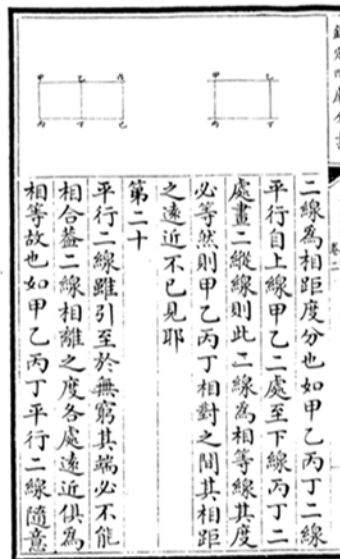 欽定四庫全書
卷二
二線為相距度分也如甲乙丙丁二線
平行自上線甲乙二處至下線丙丁二
處畫二縱線則此二線為相等線其度
必等然則甲乙丙丁相對之間其相距
之遠近不已見耶
第二十
平行二線雖引至於無窮其端必不能
相合葢二線相離之度各處遠近俱為
相等故也如甲乙丙丁平行二線隨意
甲 乙
丙 丁
甲 乙 戊
丙 丁 己